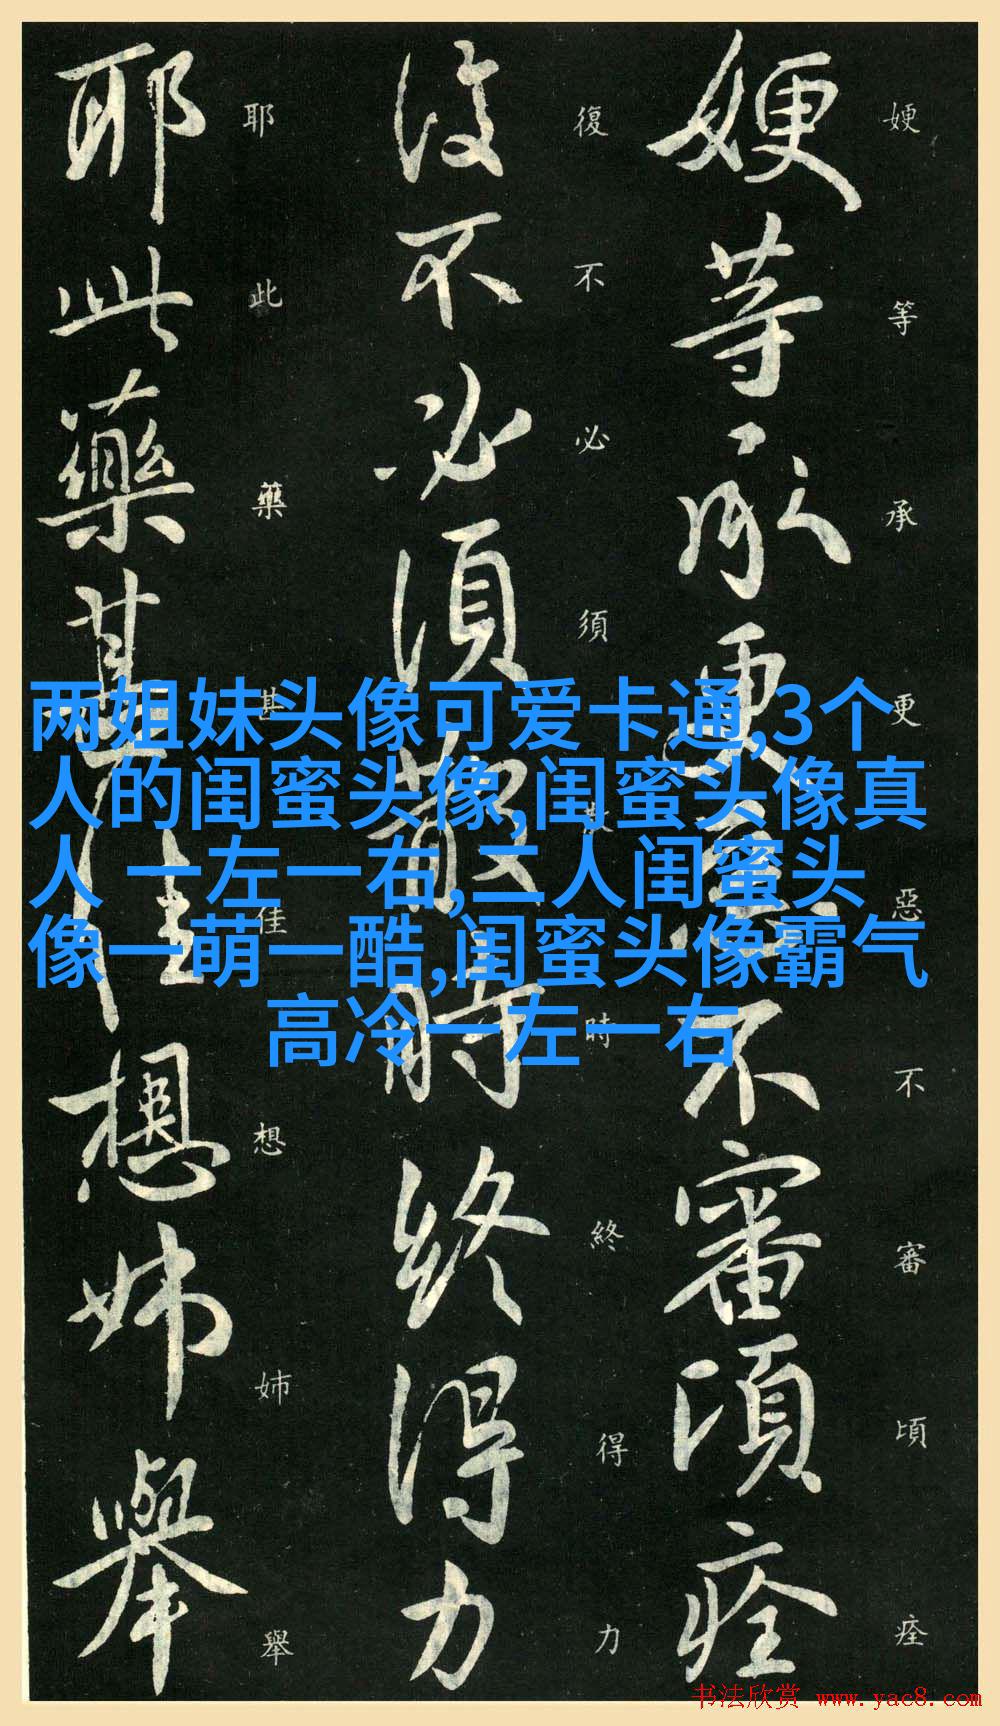 㛐等承更惡不審頃痊
㛐等承更惡不審頃痊
復不必須散時終得力
復不必須散時終得力
耶此藥甚佳想姉舉
耶此藥甚佳想姉舉
两姐妹头像可爱卡通,3个
人的闺蜜头像,闺蜜头像真
人 一左一右,二人闺蜜头
像一萌一酷,闺蜜头像霸气
高冷一左一右
书法欣赏 www.yac8.com